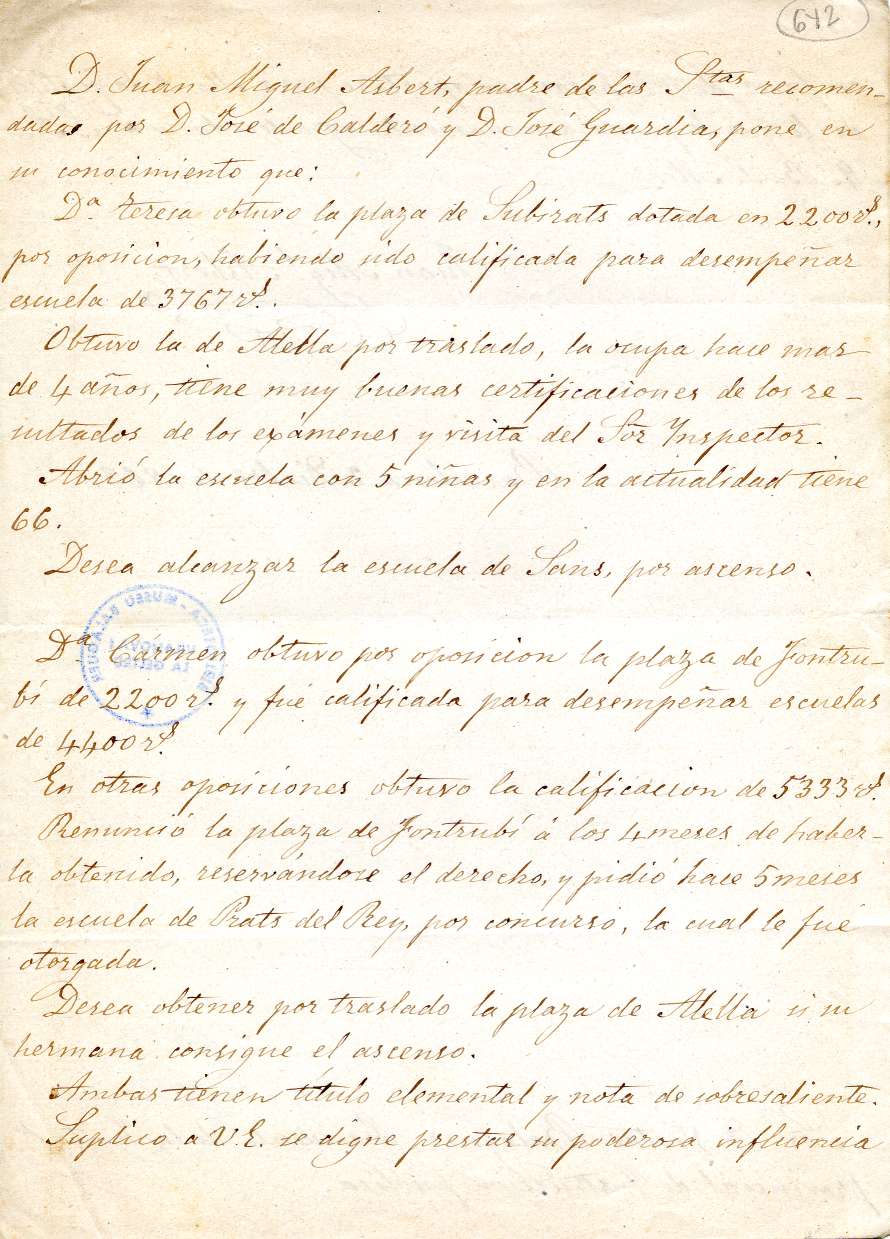 642
D. Juan Miguel Asbert, padre de las S.tas recomen-
dadas por D. José de Calderó y D. José Guardia, pone en
su conocimiento que:
D.a Teresa obtuvo la plaza de Subirats dotada en 2200 rs.,
por oposicion, habiendo sido calificada para desempeñar
escuela de 3767 rs.
Obtuvo la de Alella por traslado, la ocupa hace mas
de 4 años, tiene muy buenas certificaciones de los re-
sultados de los exámenes y visita del Sõr Inspector.
Abrió la escuela con 5 niñas y en la actualidad tiene
66.
Desea alcanzar la escuela de Sans, por ascenso.
Da Cármen obtuvo por oposicion la plaza de Fontru-
bí de 2200 rs. y fué calificada para desempeñar escuelas
de 4400 rs.
En otras oposiciones obtuvo la calificacion de 5333 rs.
Renunció la plaza de Fontrubí á los 4 meses de haber-
la obtenido, reservándose el derecho, y pidió hace 5 meses
la escuela de Prats del Rey, por concurso, la cual le fué
otorgada.
Desea obtener por traslado la plaza de Alella si su
hermana consigue el ascenso.
Ambas tienen título elemental y nota de sobresaliente.
Suplico á V.E. se digne prestar su poderosa influencia